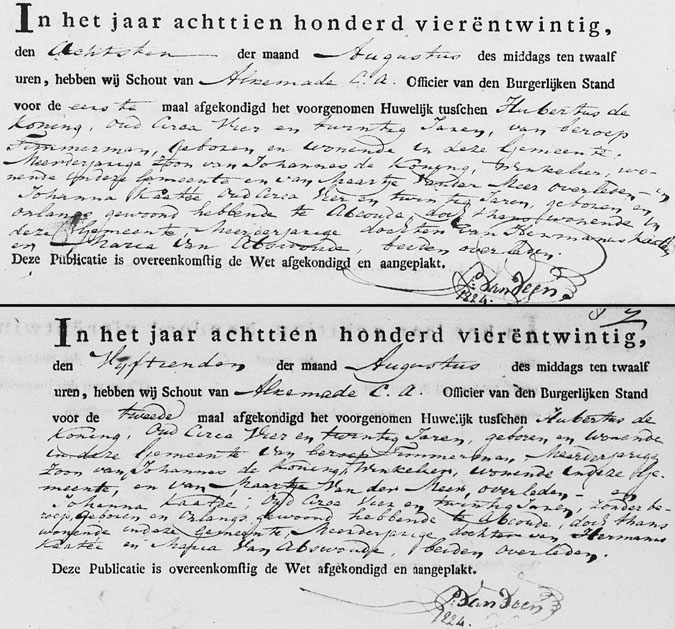 In het jaar achttien honderd vierëntwintig,
den Achtsten der maand Augustus des middags ten twaalf
uren, hebben wij Schout van Alkemade C. A. Officier van den Burgerlijken Stand
voor de eerste maal afgekondigd het voorgenomen Huwelijk tusschen Hubertus de
Koning, oud Circa Vier en twintig Jaren, van beroep
Timmerman, geboren en wonende in deze Gemeente.
Meerderjarige Zoon van Johannes de Koning, Winkelier, wo-
nende in deze Gemeente en van Maartje Van der Meer overleden - en
Johanna Kaatée oud Circa Vier en twintig Jaren, geboren en
onlangs gewoond hebbende te Abcoude, doch thans wonende in
deze Gemeente, Meerderjarige dochter van Hermanus Kaatée
en Maria Van Abswoude beiden overleden.
Deze Publicatie is overeenkomstig de Wet afgekondigd en aangeplakt.
1824.
In het jaar achttien honderd vierëntwintig,
den Vyftienden der maand Augustus des middags ten twaalf
uren, hebben wij Schout van Alkemade C. A. Officier van den Burgerlijken Stand
voor de tweede maal afgekondigd het voorgenomen Huwelijk tusschen Hubertus de
Koning, Oud Circa Vier en twintig Jaren, geboren en wonende
in deze Gemeente van beroep Timmerman, Meerderjarige
Zoon van Johannes de Koning, Winkelier, wonende in deze Ge-
meente, en van Maartje Van der Meer, overleden - en
Johanna Kaatje Oud Circa Vier en twintig Jaren, zonder be-
roep, geboren en Onlangs gewoond hebbende te Abcoude, doch thans
wonende in deze Gemeente, Meerderjarige dochter van Hermanus
Kaatée en Maria Van Abswoude, beiden overleden.
Deze Publicatie is overeenkomstig de Wet afgekondigd en aangeplakt.
1824.